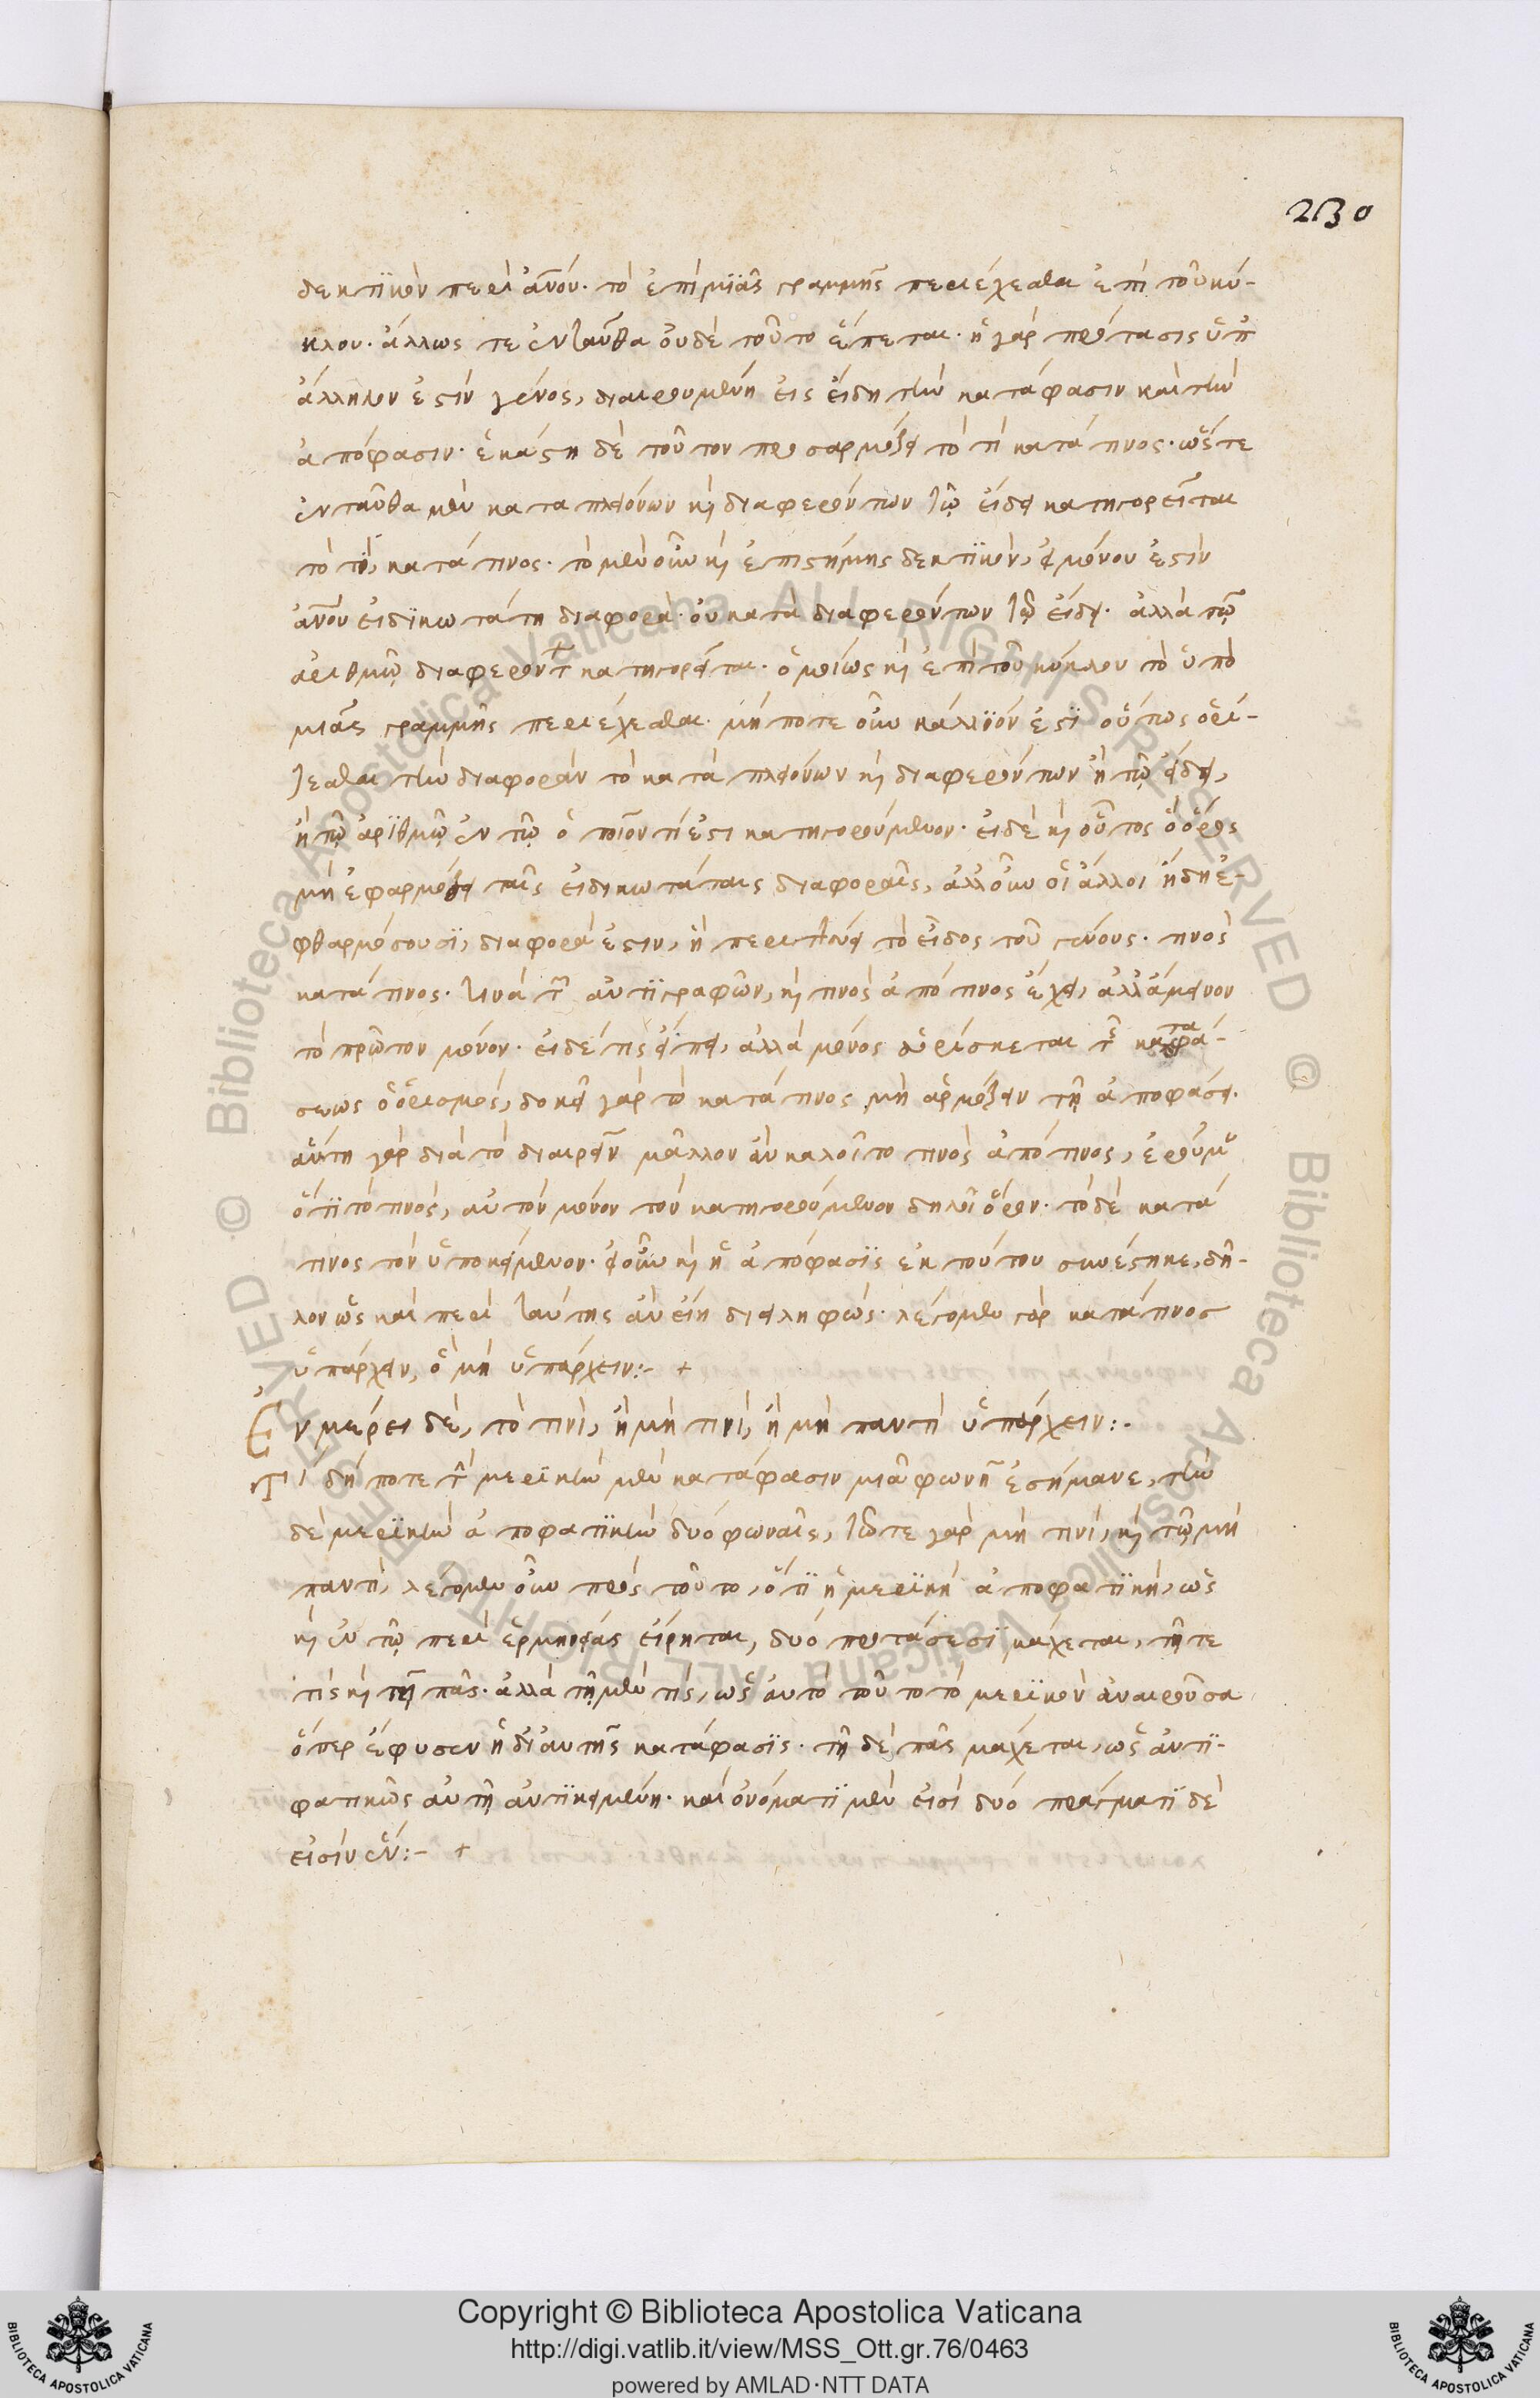 230
δεκτικὸν περὶ ἀνου· τὸ ἐπὶ μιᾶς γραμμῆς περιέχεσθαι ἐπὶ τοῦ κύ-
κλου· ἄλλως τε ἐνταῦθα οὐδὲ τοῦτο ἕπεται· ἡ γὰρ πρότασις ὑπ
ἄλληλον ἐστὶν γένος, διαιρουμένη εἰς εἴδη τὴν κατάφασιν καὶ τὴν
ἀπόφασιν· ἑκάστη δὲ τοῦτον προσαρμόζει τὸ τὶ κατά τινος· ὥστε
ἐνταῦθα μὲν κατα πλειόνων κὶ διαφερόντων τῷ εἴδει κατηγορεῖται
τὸ τὶ, κατά τινος· τὸ μὲν οὖν κὶ ἐπιστήμης δεκτικὸν, εἰ μόνου ἐστὶν
ἀνου εἰδικωτάτη διαφορὰ· οὐ κατὰ διαφερόντων τῷ εἴδει· ἀλλὰ τῷ
ἀριθμῷ διαφερόντ κατηγορεῖται· ὁμοίως κὶ ἐπὶ τοῦ κύκλου τὸ ὑπὸ
μιᾶς γραμμῆς περιέχεσθαι· μή ποτε οὖν κάλλιόν ἐστι οὕτως ὁρί-
ζεσθαι τὴν διαφορὰν τὸ κατὰ πλειόνων κὶ διαφερόντων ἢ τῷ εἴδει,
ἢ τῷ ἀριθμῷ ἐν τῷ ὁποῖον τί ἐστι κατηγορούμενον· εἰ δὲ κὶ οὗτος ὁ ὅρος
μὴ ἐφαρμόζει ταῖς εἰδικωτάταις διαφοραῖς, ἀλλ οὖν οἱ ἄλλοι ἤδη ἐ-
φθαρμόσουσι, διαφορά ἐστιν, ἣ περιττεύει τὸ εἶδος τοῦ γένους· τινὸς
κατά τινος· τινὰ τ ἀντιγραφῶν, κὶ τινὸς ἀπό τινος ἔχει, ἀλλ ἄμεινον
τὸ πρῶτον μόνον· εἰ δέ τις εἴπει, ἀλλὰ μόνος εὑρίσκεται τ καταφά-
σεως ὁ ὁρισμός, δοκεῖ γὰρ τὸ κατά τινος μὴ ἁρμόζειν τῇ ἀποφάσει·
αὕτη γὰρ διὰ τὸ διαιρεῖν μᾶλλον ἂν καλοῖτο τινὸς ἀπό τινος, ἐροῦμ
ὅτι τὸ τινὸς, αὐτὸν μόνον τὸν κατηγορούμενον δηλοῖ ὅρον· τὸ δὲ κατά
τινος τὸν ὑποκείμενον· εἰ οὖν κὶ ἡ ἀπόφασις ἐκ τούτου συνέστηκε, δῆ-
λον ὡς καὶ περὶ ταύτης ἂν εἴη διειληφώς· λέγομεν γὰρ κατά τινος
ὑπάρχειν, ὃ μὴ ὑπάρχειν:- +
Ἐν μέρει δὲ, τὸ τινὶ, ἢ μὴ τινὶ, ἢ μὴ παντὶ ὑπάρχειν:·
Τί δή ποτε τ μερικὴν μὲν κατάφασιν μιᾷ φωνῇ ἐσήμανε, τὴν
δὲ μερικὴν ἀποφατικὴν δυὸ φωναῖς, τῷ τε γὰρ μὴ τινὶ, κὶ τῷ μὴ
παντὶ, λέγομεν οὖν πρὸς τοῦτο, ὅτι ἡ μερικὴ ἀποφατικὴ, ὡς
κὶ ἐν τῷ περὶ ἑρμηνείας εἴρηται, δυό προτάσεσι μάχεται, τῇ τε
τὶς κὶ τῇ πᾶς· ἀλλὰ τῇ μὲν τὶς, ὡς αὐτὸ τοῦτο τὸ μερικὸν ἀναιροῦσα
ὅπερ ἔφυσεν ἡ δι αὐτῆς κατάφασις· τῇ δὲ πᾶς μάχεται, ὡς ἀντι-
φατικῶς αὐτῇ ἀντικειμένη· καὶ ὀνόματι μὲν εἰσὶ δυό πράγματι δὲ
εἰσὶν ἕν:- +
Copyright © Biblioteca Apostolica Vaticana
http://digi.vatlib.it/view/MSS_Ott.gr.76/0463
powered by AMLAD·NTT DATA